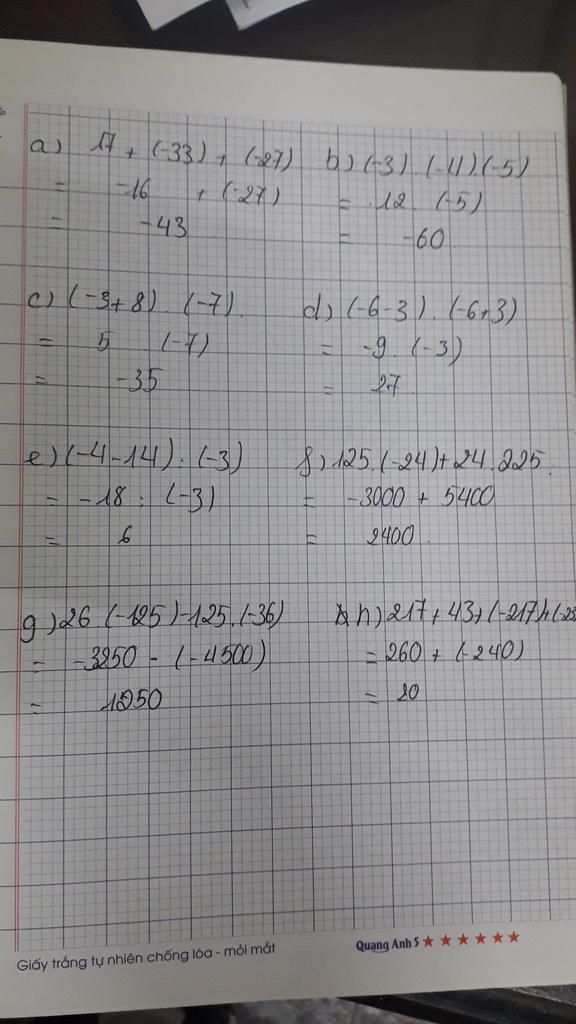 a) 17 + (-33) + (-27) b) (-3) . (-4) . (-5)
= -16 + (-27) = 12 . (-5)
= -43 = -60
c) (-3+8) . (-7) d) (-6-3) . (-6+3)
= 5 (-7) = -9 . (-3)
= -35 = 27
e) (-4-14) : (-3) f) 125.(-24)+24.225
= -18 : (-3) = -3000 + 5400
= 6 = 2400
g) 26 (-125)-125.(-36) h) 217+43+(-217)+(-23
= -3250 - (-4500) = 260 + (-240)
= 1250 = 20
Giấy trắng tự nhiên chống lóa - mỏi mắt Quang Anh 5 ★★★★★★